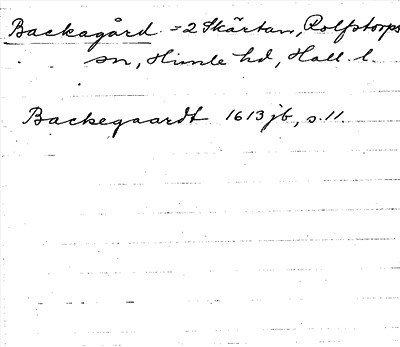 Backagård = 2 Skärtan, Rolfstorps
sn, Himle hd, Hall. l.
Backegaardt 1613 jb, s. 11.